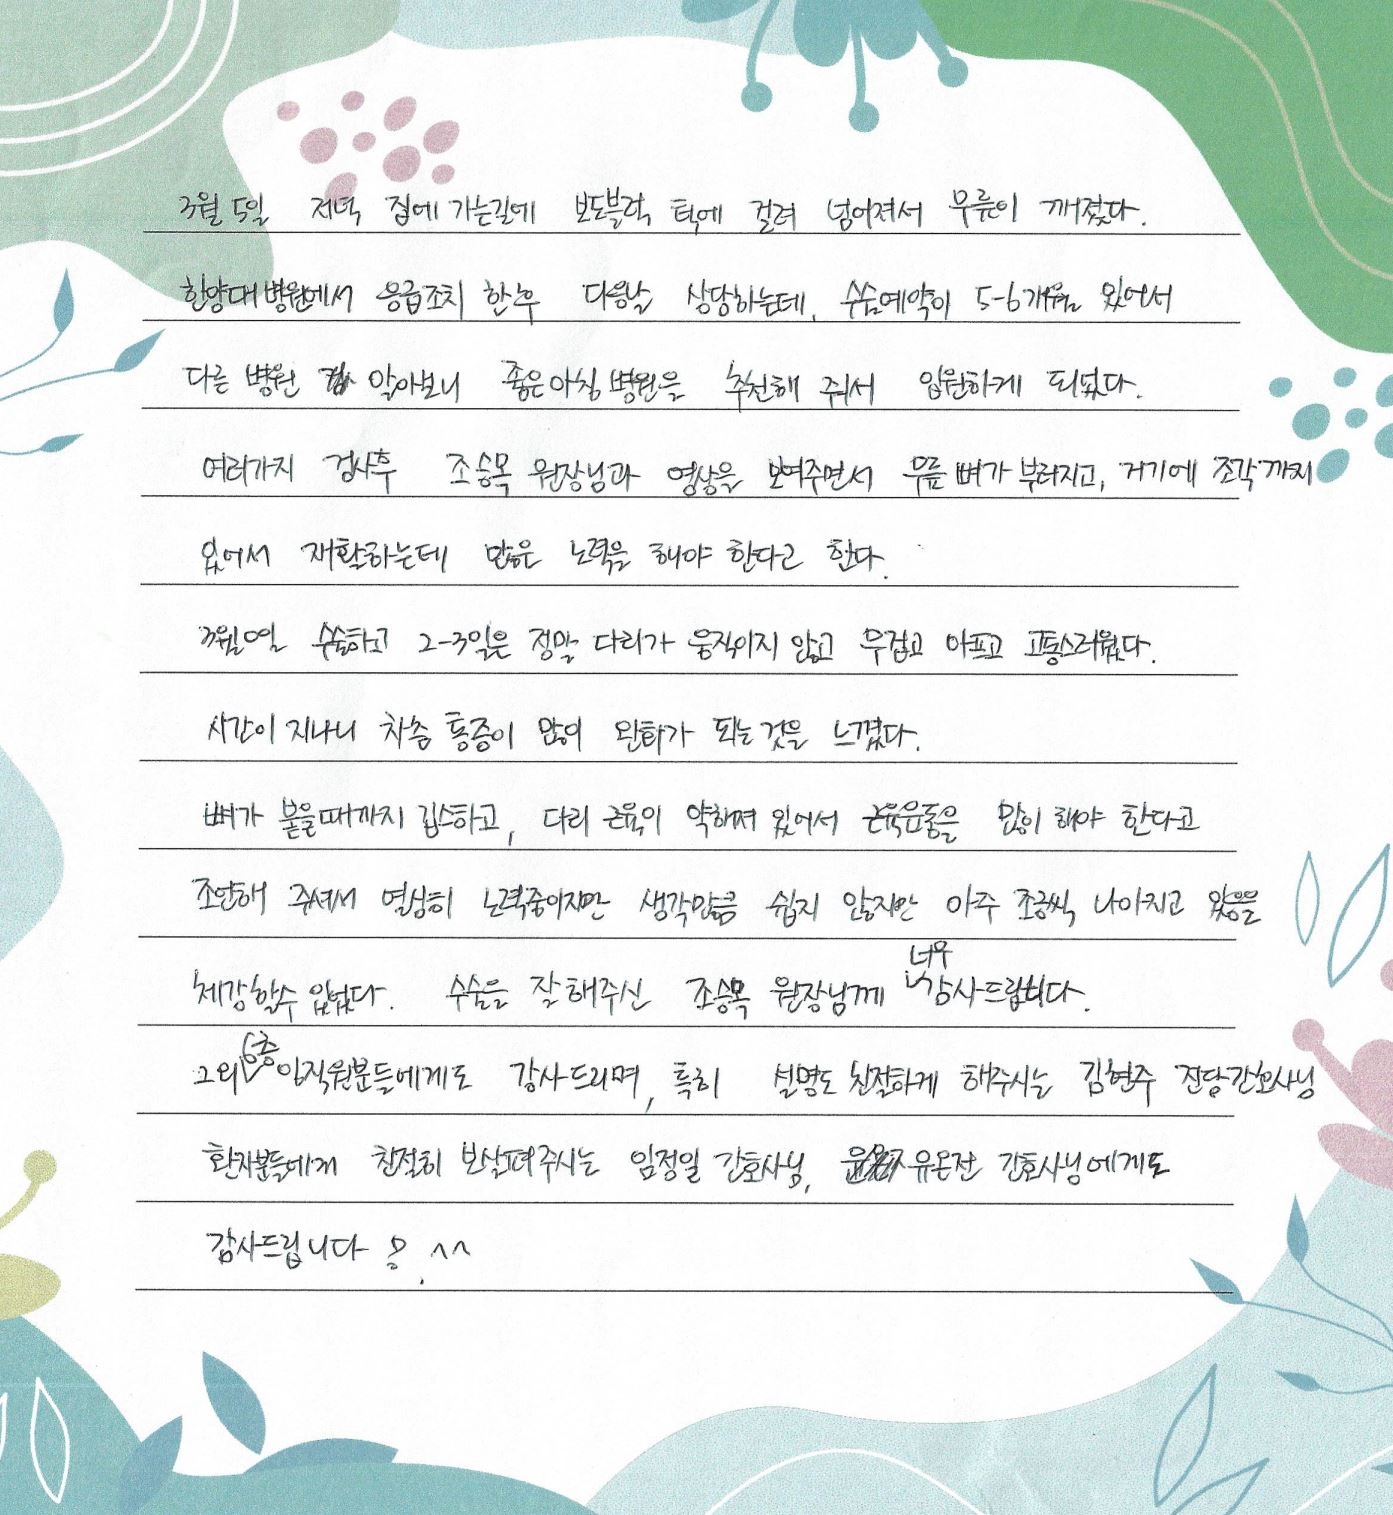 3월 5일 저녁 집에 가는길에 보도블럭 턱에 걸려 넘어져서 무릎이 깨졌다.
한양대병원에서 응급조치 한후 다음날 상담하는데, 수술예약이 5-6개월 있어서
다른 병원 알아보니 좋은아침병원을 추천해 줘서 입원하게 되었다.
여러가지 검사후 조승목 원장님과 영상을 보여주면서 무릎뼈가 부러지고, 거기에 조각까지
있어서 재활하는데 많은 노력을 해야 한다고 한다.
수술하고 2-3일은 정말 다리가 움직이지 않고 무겁고 아프고 고통스러웠다.
시간이 지나니 차츰 통증이 많이 완화가 되는것을 느꼈다.
뼈가 붙을때까지 깁스하고, 다리 근육이 약해져 있어서 근육운동을 많이 해야 한다고
조언해 주셔서 열심히 노력중이지만 생각만큼 쉽지 않지만 아주 조금씩 나아지고 있음을
체감할수 있었다. 수술을 잘해주신 조승목 원장님께 너무 감사드립니다.
그외 6층 임직원분들에게도 감사드리며, 특히 설명도 친절하게 해주시는 김현주 전담간호사님
환자분들에게 친절히 보살펴주시는 임정일 간호사님, 유은잔 간호사님에게도
감사드립니다 ^^